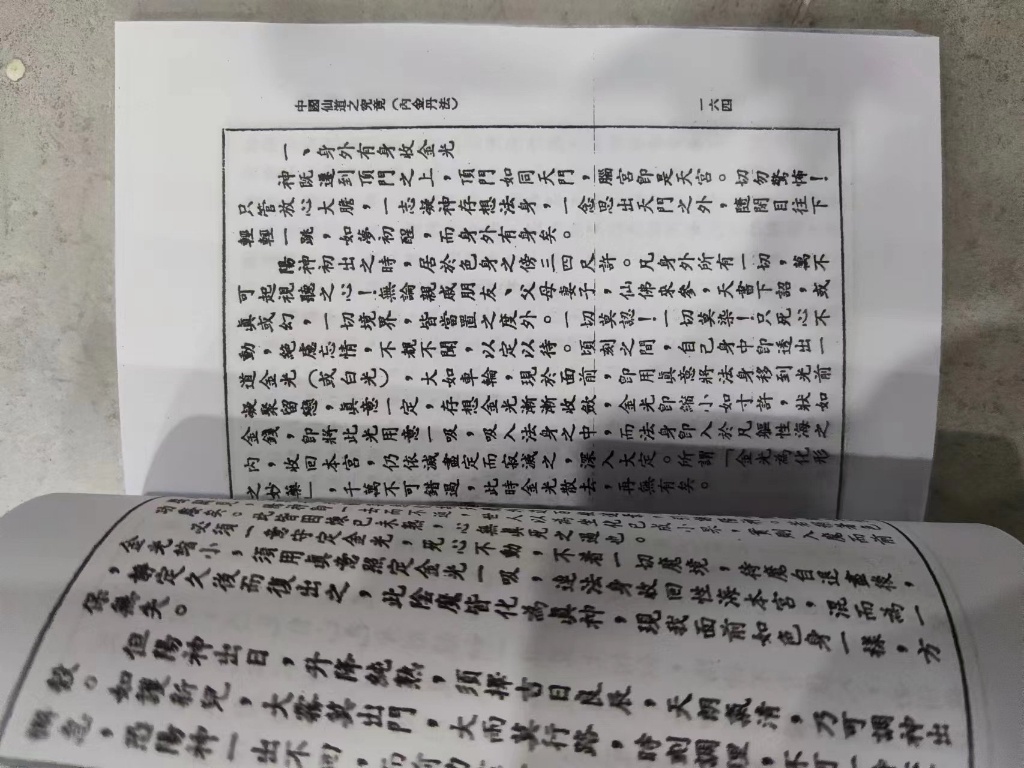 中國仙道之究竟(內金丹法)
一六四
一、身外有身收金光
神既達到頂門之上，頂門如同天門，腦宮即是天宮。切勿驚怖！
只管放心大膽，一志凝神存想法身，一念思出天門之外，隨閉目往下
輕輕一跳，如夢初醒，而身外有身矣。
陽神初出之時，居於色身之傍三四尺許。凡身外所有一切，萬不
可起視聽之心！無論親戚朋友、父母妻子，仙佛來參，天書下詔，或
真或幻，一切境界，皆當置之度外。一切莫認！一切莫染！只死心不
動，絕慮忘情，不覩不聞，以定以待。頃刻之間，自己身中即透出一
道金光(或白光)，大如車輪，現於面前，即用真意將法身移到光前
凝聚留戀，真意一定，存想金光漸漸收斂，金光即縮小如寸許，狀如
金錢，即將此光用意一吸，吸入法身之中，而法身即入於凡軀性海之
內，收回本宮，仍依滅盡定而寂滅之，深入大定。所謂「金光為化形
之妙藥」，千萬不可錯過，此時金光散去，再無有矣。
必須一意守定金光，死心不動，不着一切魔境，待魔自退盡後，
金光縮小，須用真意照定金光一吸，連法身收回性海本宮，混而為一
，靜定久後而復出之，此陰魔皆化為真神，現我面前如色身一樣，方
保無失。
但陽神出日，升降純熟，須擇吉日良辰，天朗氣清，乃可調神出
殼。如護新兒，大霧莫出門，大雨莫行路，時刻調理，不可
恐陽神一出不